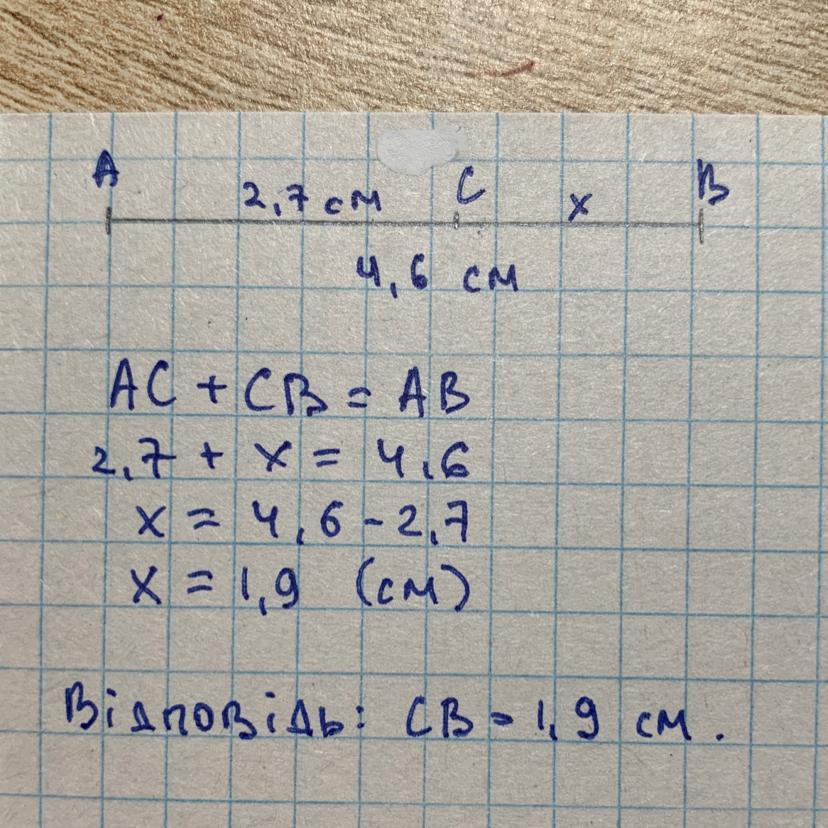 A 2,7 см C x B
4,6 см
AC + CB = AB
2,7 + x = 4,6
x = 4,6 - 2,7
x = 1,9 (см)
Відповідь: CB = 1,9 см.